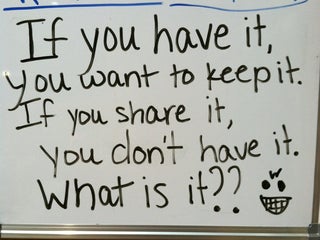 If you have it,
you want to keep it.
If you share it,
you don't have it.
What is it??